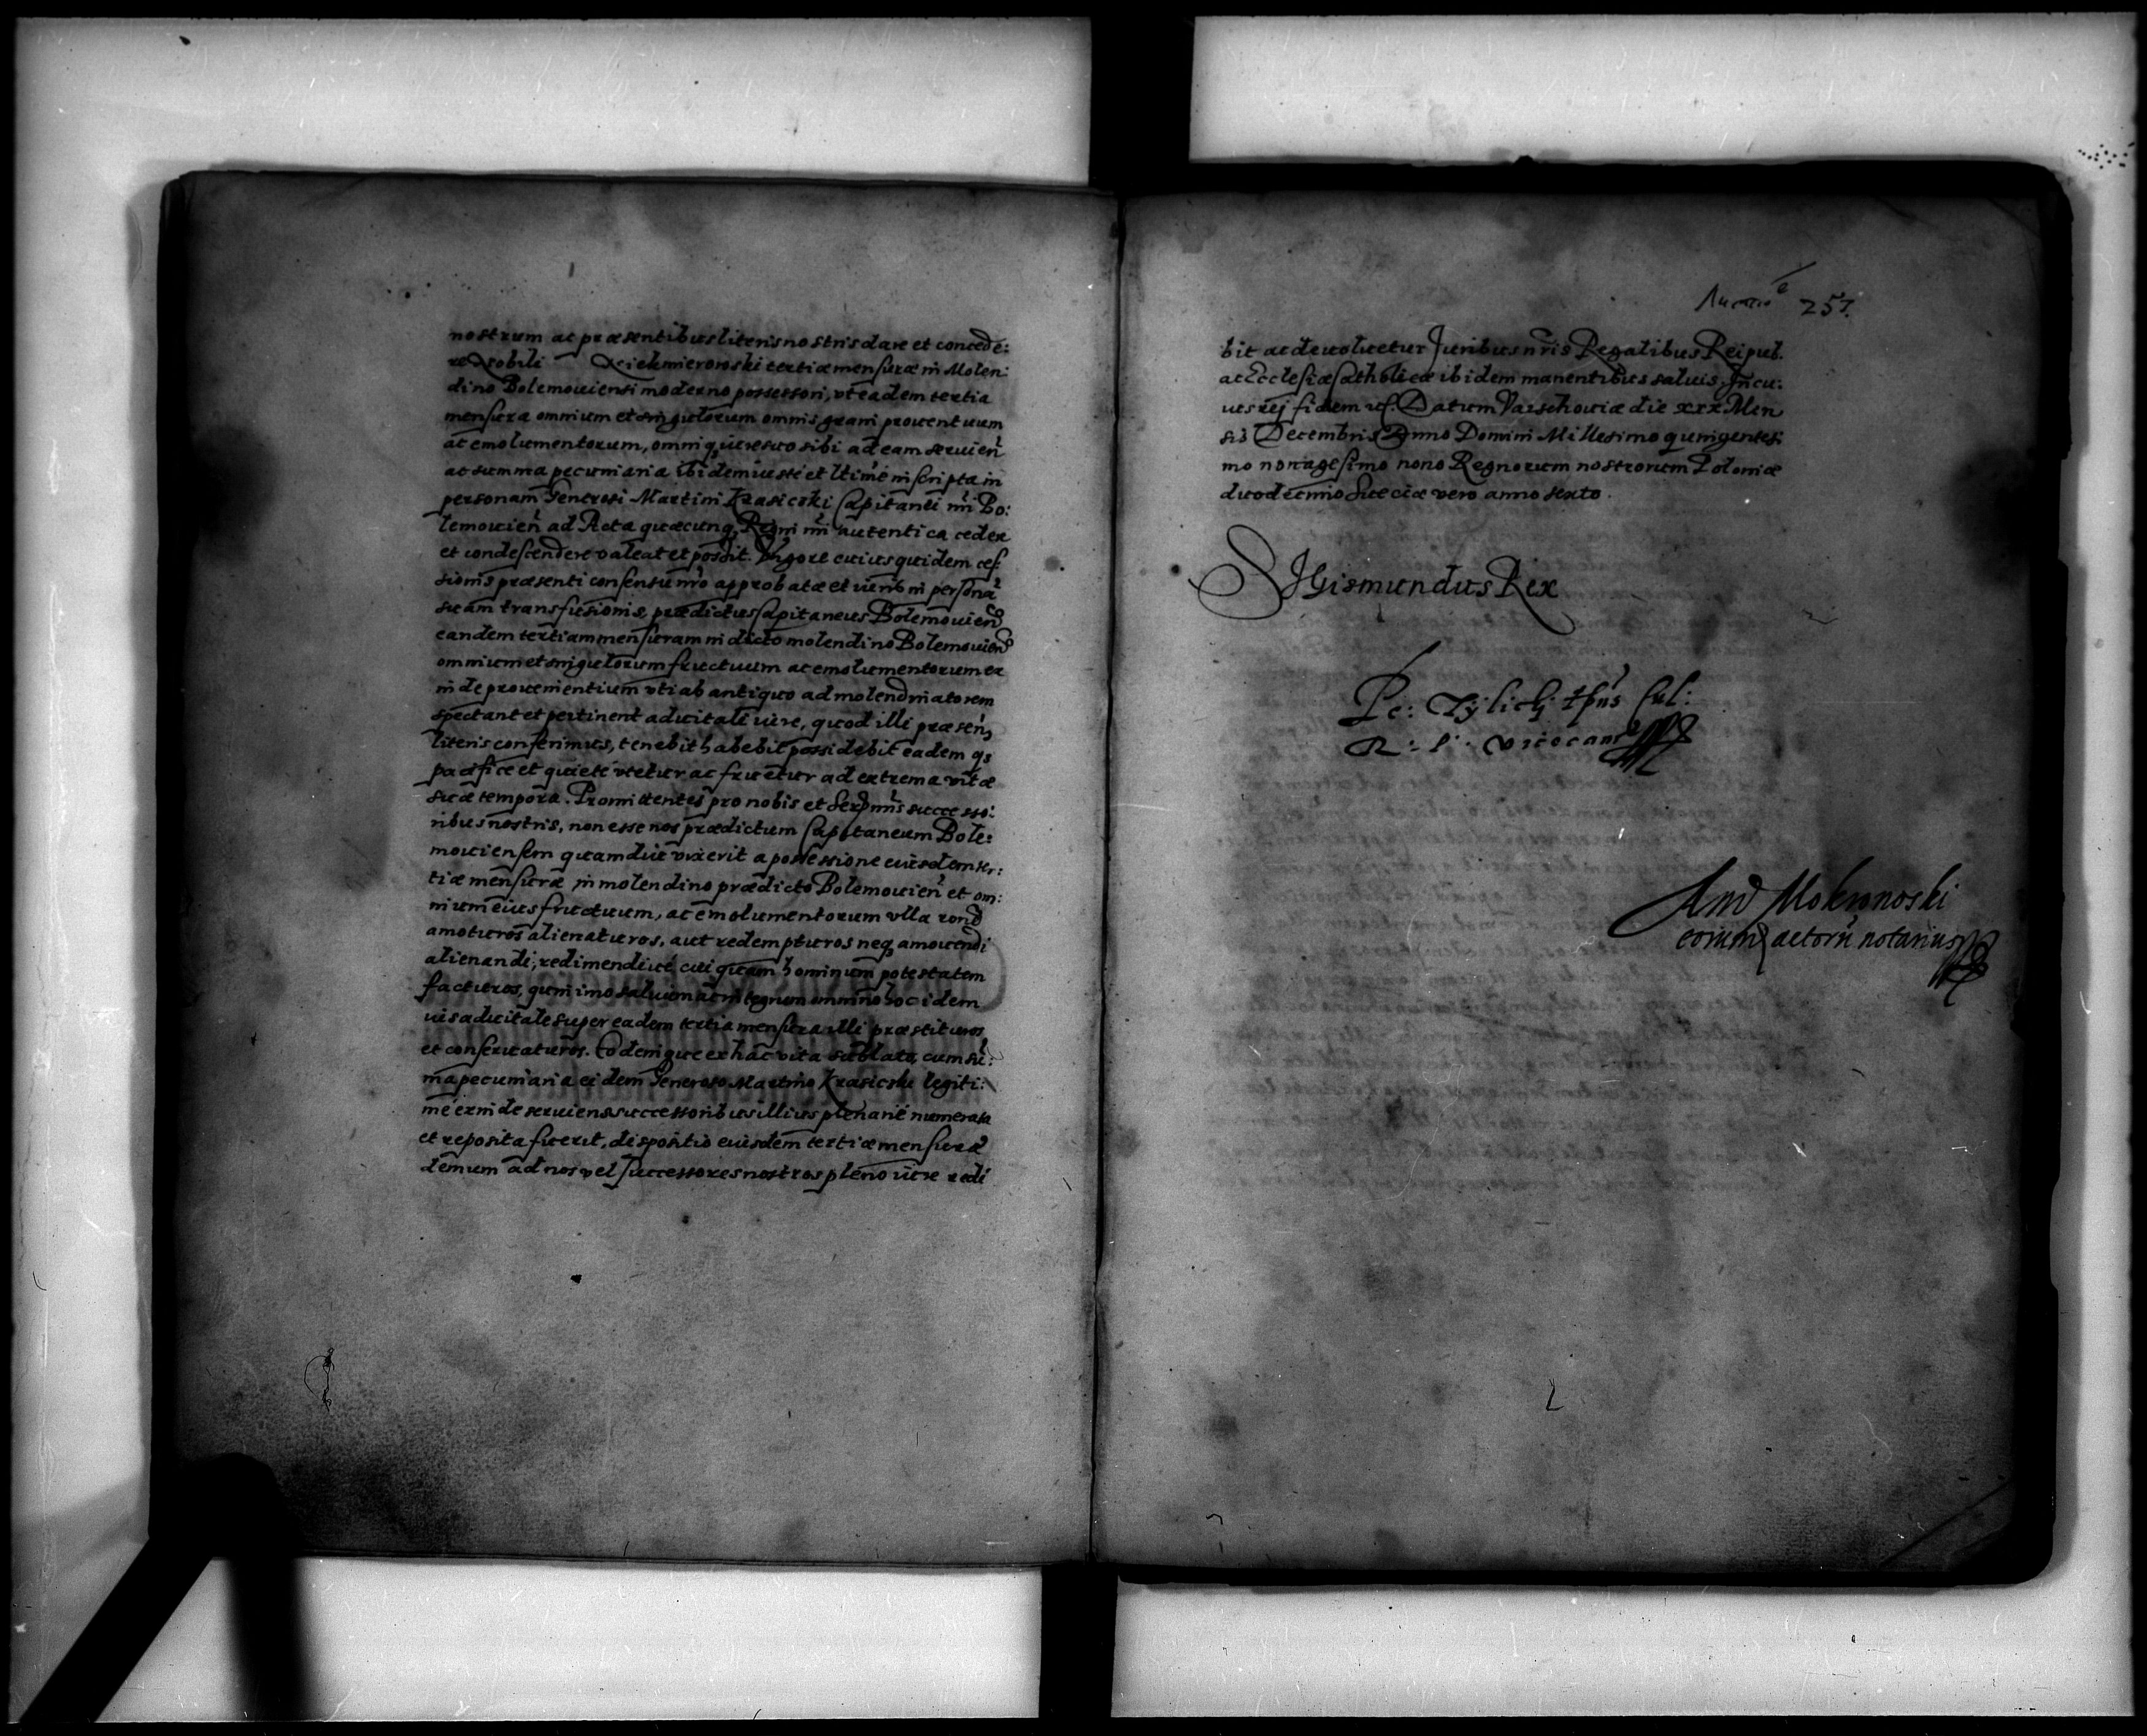 nostrum ac præsentibus literis nostris dare et concede:
re Nobili tertiæ mensuræ in Molen:
dino Bolemouiensi moderno possessori, vt eadem tertia
mensura omnium et singulorum omnis grani prouentuum
ac emolumentorum, omniq, iure suo sibi ad eam seruien
ac summa pecuniaria ibidem iuste et ltime inscripta in
personam Generosi Martini Krasicski Capitanei nri Bo:
lemouien ad Acta quæcunq, Regni nri autentica cedere
et condescendere valeat et possit. Vigore cuius quidem ces
sionis præsenti consensu nro approbatæ et iurib in persona
suam transfusionis, prædictus Capitaneus Bolemouien
eandem tertiam mensuram in dicto molendino Bolemouien
omnium et singulorum fructuum ac emolumentorum ex
inde prouenientium vti ab antiquo ad molendinatorem
spectant et pertinent aduitali iure, quod illi præsen,
literis conferimus, tenebit habebit possidebit eadem qs
pacifice et quiete vtetur ac fruetur ad extrema vitæ
suæ tempora. Promittentes pro nobis et Serpmis successo:
ribus nostris, non esse nos prædictum Capitaneum Bole:
mouiensem quamdiu vixerit a possessione eiusdem ter:
tiæ mensuræ in molendino prædicto Bolemouien et om:
nium eius fructuum, ac emolumentorum vlla rone
amoturos alienaturos, aut redempturos neq, amouendi
alienandi, redimendiue cuiquam hominum potestatem
facturos, quin imo saluum ac integrum omnino hoc idem
ius aduitale super eadem tertia mensura illi præstituros
et conseruaturos. Eo denique ex hac vita sublato, cum su:
ma pecuniaria eidem Generoso Martino Krasicski legiti:
me exinde seruiens successoribus illius plenarie numerata
et reposita fuerit, dispositio eiusdem tertiæ mensuræ
demum ad nos vel successores nostros pleno iure redi
257.
bit ac deuoluetur Juribus nris Regalibus Reipub.
ac Ecclesiæ Catholicæ ibidem manentibus saluis. In cu:
ius rej fidem Datum Varschouiæ die xxx Men
sis Decembris Anno Domini Millesimo quingentesi
mo nonagesimo nono Regnorum nostrorum Poloniæ
duodecimo Sueciæ vero anno sexto.
SIGismundus Rex
Pe: Tylicki Epus Cul:
R: P: vicecan
And Mokronoski
eorund actoru notarius